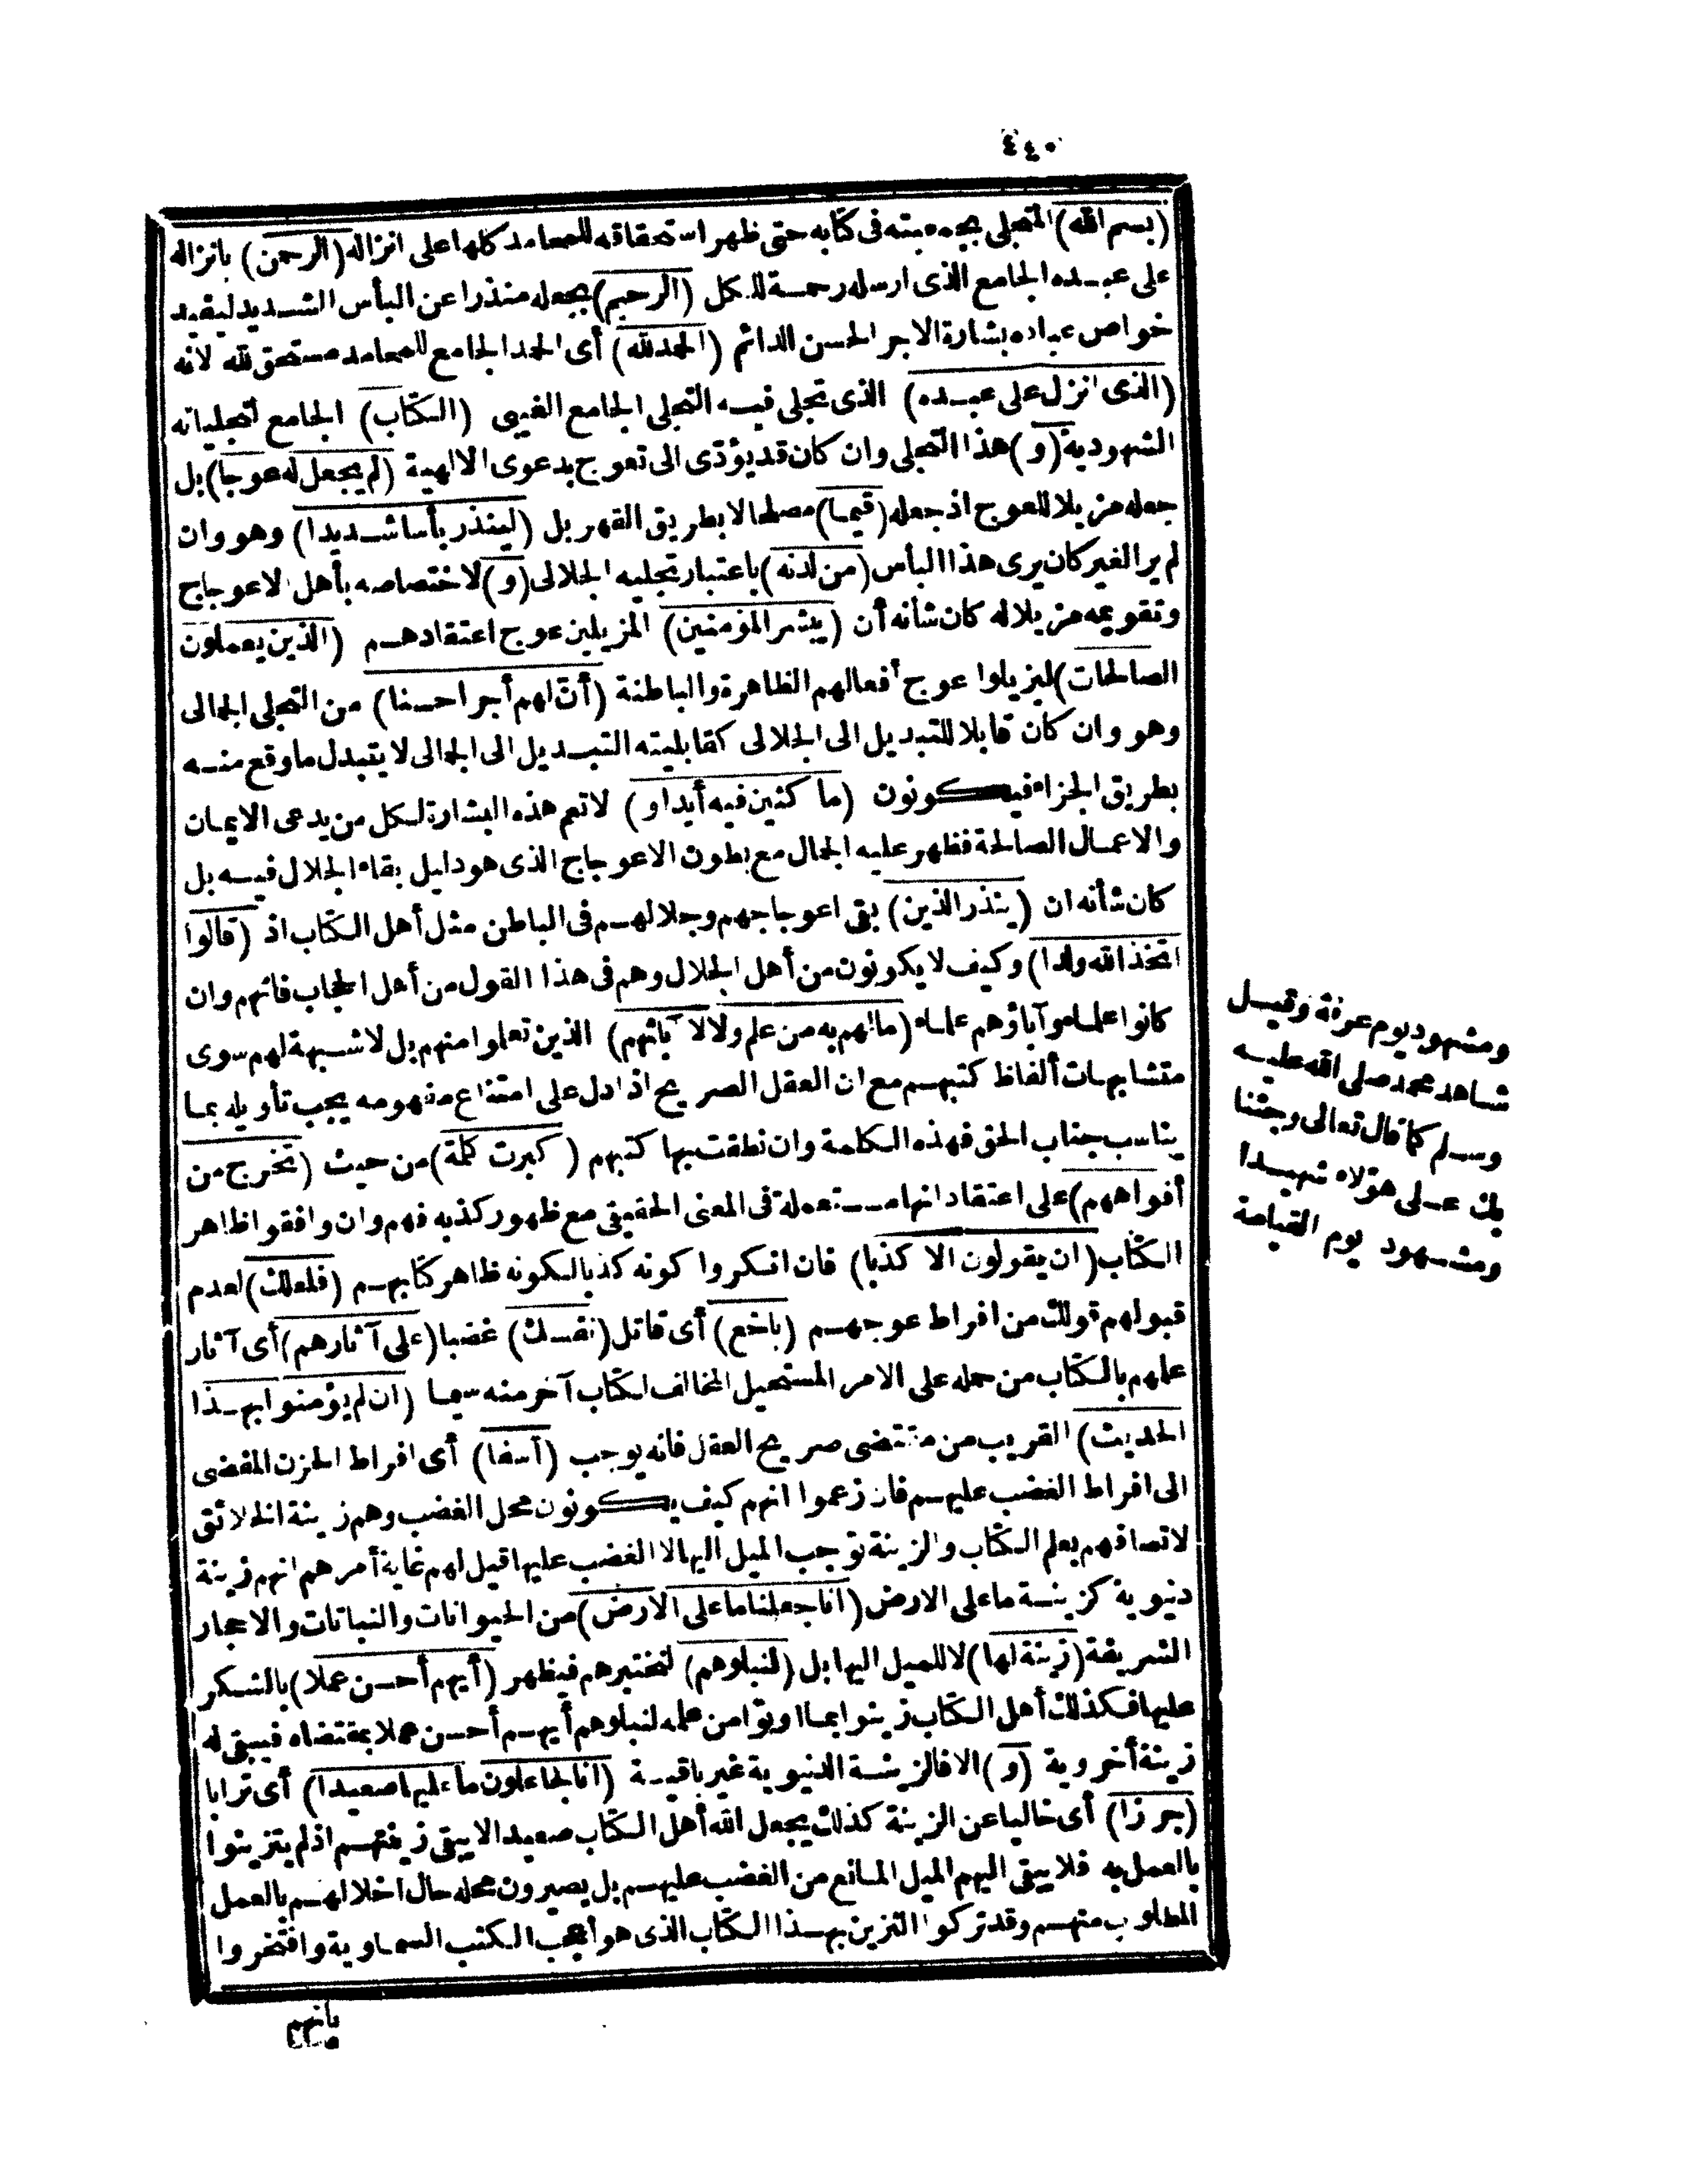 ٤٤٠
(بسم الله) المتجلى بجمعيته فى كتابه حتى ظهر استحقاقه للمحامد كلها على انزاله (الرحمن) بانزاله
على عبده الجامع الذى ارسله رحمة للكل (الرحيم) بجعله منذرا عن البأس الشديد ليفيد
خواص عباده بشارة الاجر الحسن الدائم (الحمد لله) أى الحمد الجامع للمحامد مستحق لله لانه
(الذى انزل على عبده) الذى تجلى فيه التجلى الجامع الغيبى (الكتاب) الجامع لتجلياته
الشهودية (و) هذا التجلى وان كان قد يؤدى الى تعوج بدعوى الالهية (لم يجعل له عوجا) بل
جعله مزيلا للعوج اذ جعله (قيما) مصلحا لا بطريق القهر بل (لينذر بأسا شديدا) وهو وان
لم ير الغير كان يرى هذا البأس (من لدنه) باعتبار تجليه الجلالى (و) لاختصاصه بأهل الاعوجاج
وتقويمه مزيلا له كان شأنه أن (يبشر المؤمنين) المزيلين عوج اعتقادهم (الذين يعملون
الصالحات) ليزيلوا عوج أفعالهم الظاهرة والباطنة (أن لهم أجرا حسنا) من التجلى الجمالى
وهو وان كان قابلا للتبديل الى الجلالى كقابليته التبديل الى الجمالى لا يتبدل ما وقع منه
بطريق الجزاء فيكونون (ماكثين فيه أبدا و) لا تعم هذه البشارة لكل من يدعى الايمان
والاعمال الصالحة فظهر عليه الجمال مع بطون الاعوجاج الذى هو دليل بقاء الجلال فيه بل
كان شأنه ان (ينذر الذين) بقى اعوجاجهم وجلالهم فى الباطن مثل أهل الكتاب اذ (قالوا
اتخذ الله ولدا) وكيف لا يكونون من أهل الجلال وهم فى هذا القول من أهل الحجاب فانهم وان
كانوا علماء وآباؤهم علماء (ما لهم به من علم ولا لآبائهم) الذين تعلموا منهم بل لا شبهة لهم سوى
متشابهات ألفاظ كتبهم مع ان العقل الصريح اذا دل على امتناع مفهومه يجب تأويله بما
يناسب جناب الحق فهذه الكلمة وان نطقت بها كتبهم (كبرت كلمة) من حيث (تخرج من
أفواههم) على اعتقاد انها مستعملة فى المعنى الحقيقى مع ظهور كذبه فهم وان وافقوا ظاهر
الكتاب (ان يقولون الا كذبا) فان انكروا كونه كذبا لكونه ظاهر كتابهم (فلعلك) لعدم
قبولهم قولك من افراط عوجهم (باخع) أى قاتل (نفسك) غضبا (على آثارهم) أى آثار
علمهم بالكتاب من حمله على الامر المستحيل المخالف لكتاب آخر منه سيما (ان لم يؤمنوا بهذا
الحديث) القريب من مقتضى صريح العقل فانه يوجب (أسفا) أى افراط الحزن المفضى
الى افراط الغضب عليهم فان زعموا انهم كيف يكونون محل الغضب وهم زينة الخلائق
لاتصافهم بعلم الكتاب والزينة توجب الميل اليها لا الغضب عليها قيل لهم غاية أمرهم انهم زينة
دنيوية كزينة ما على الارض (انا جعلنا ما على الارض) من الحيوانات والنباتات والاحجار
الشريفة (زينة لها) لا للميل اليها بل (لنبلوهم) لنختبرهم فيظهر (أيهم أحسن عملا) بالشكر
عليها فكذلك أهل الكتاب زينوا بما اوتوا من علمه لنبلوهم أيهم أحسن عملا بمقتضاه فيبقى له
زينة أخروية (و) الا فالزينة الدنيوية غير باقية (انا لجاعلون ما عليها صعيدا) أى ترابا
(جرزا) أى خاليا عن الزينة كذلك يجعل الله أهل الكتاب صعيدا لا يبقى زينتهم اذ لم يتزينوا
بالعمل به فلا يبقى اليهم الميل المانع من الغضب عليهم بل يصيرون محله حال اخلالهم بالعمل
المطلوب منهم وقد تركوا التزين بهذا الكتاب الذى هو أعجب الكتب السماوية وافتخروا
بانهم
ومشهود يوم عرفة وقيل
شاهد محمد صلى الله عليه
وسلم كما قال تعالى وجئنا
بك على هؤلاء شهيدا
ومشهود يوم القيامة